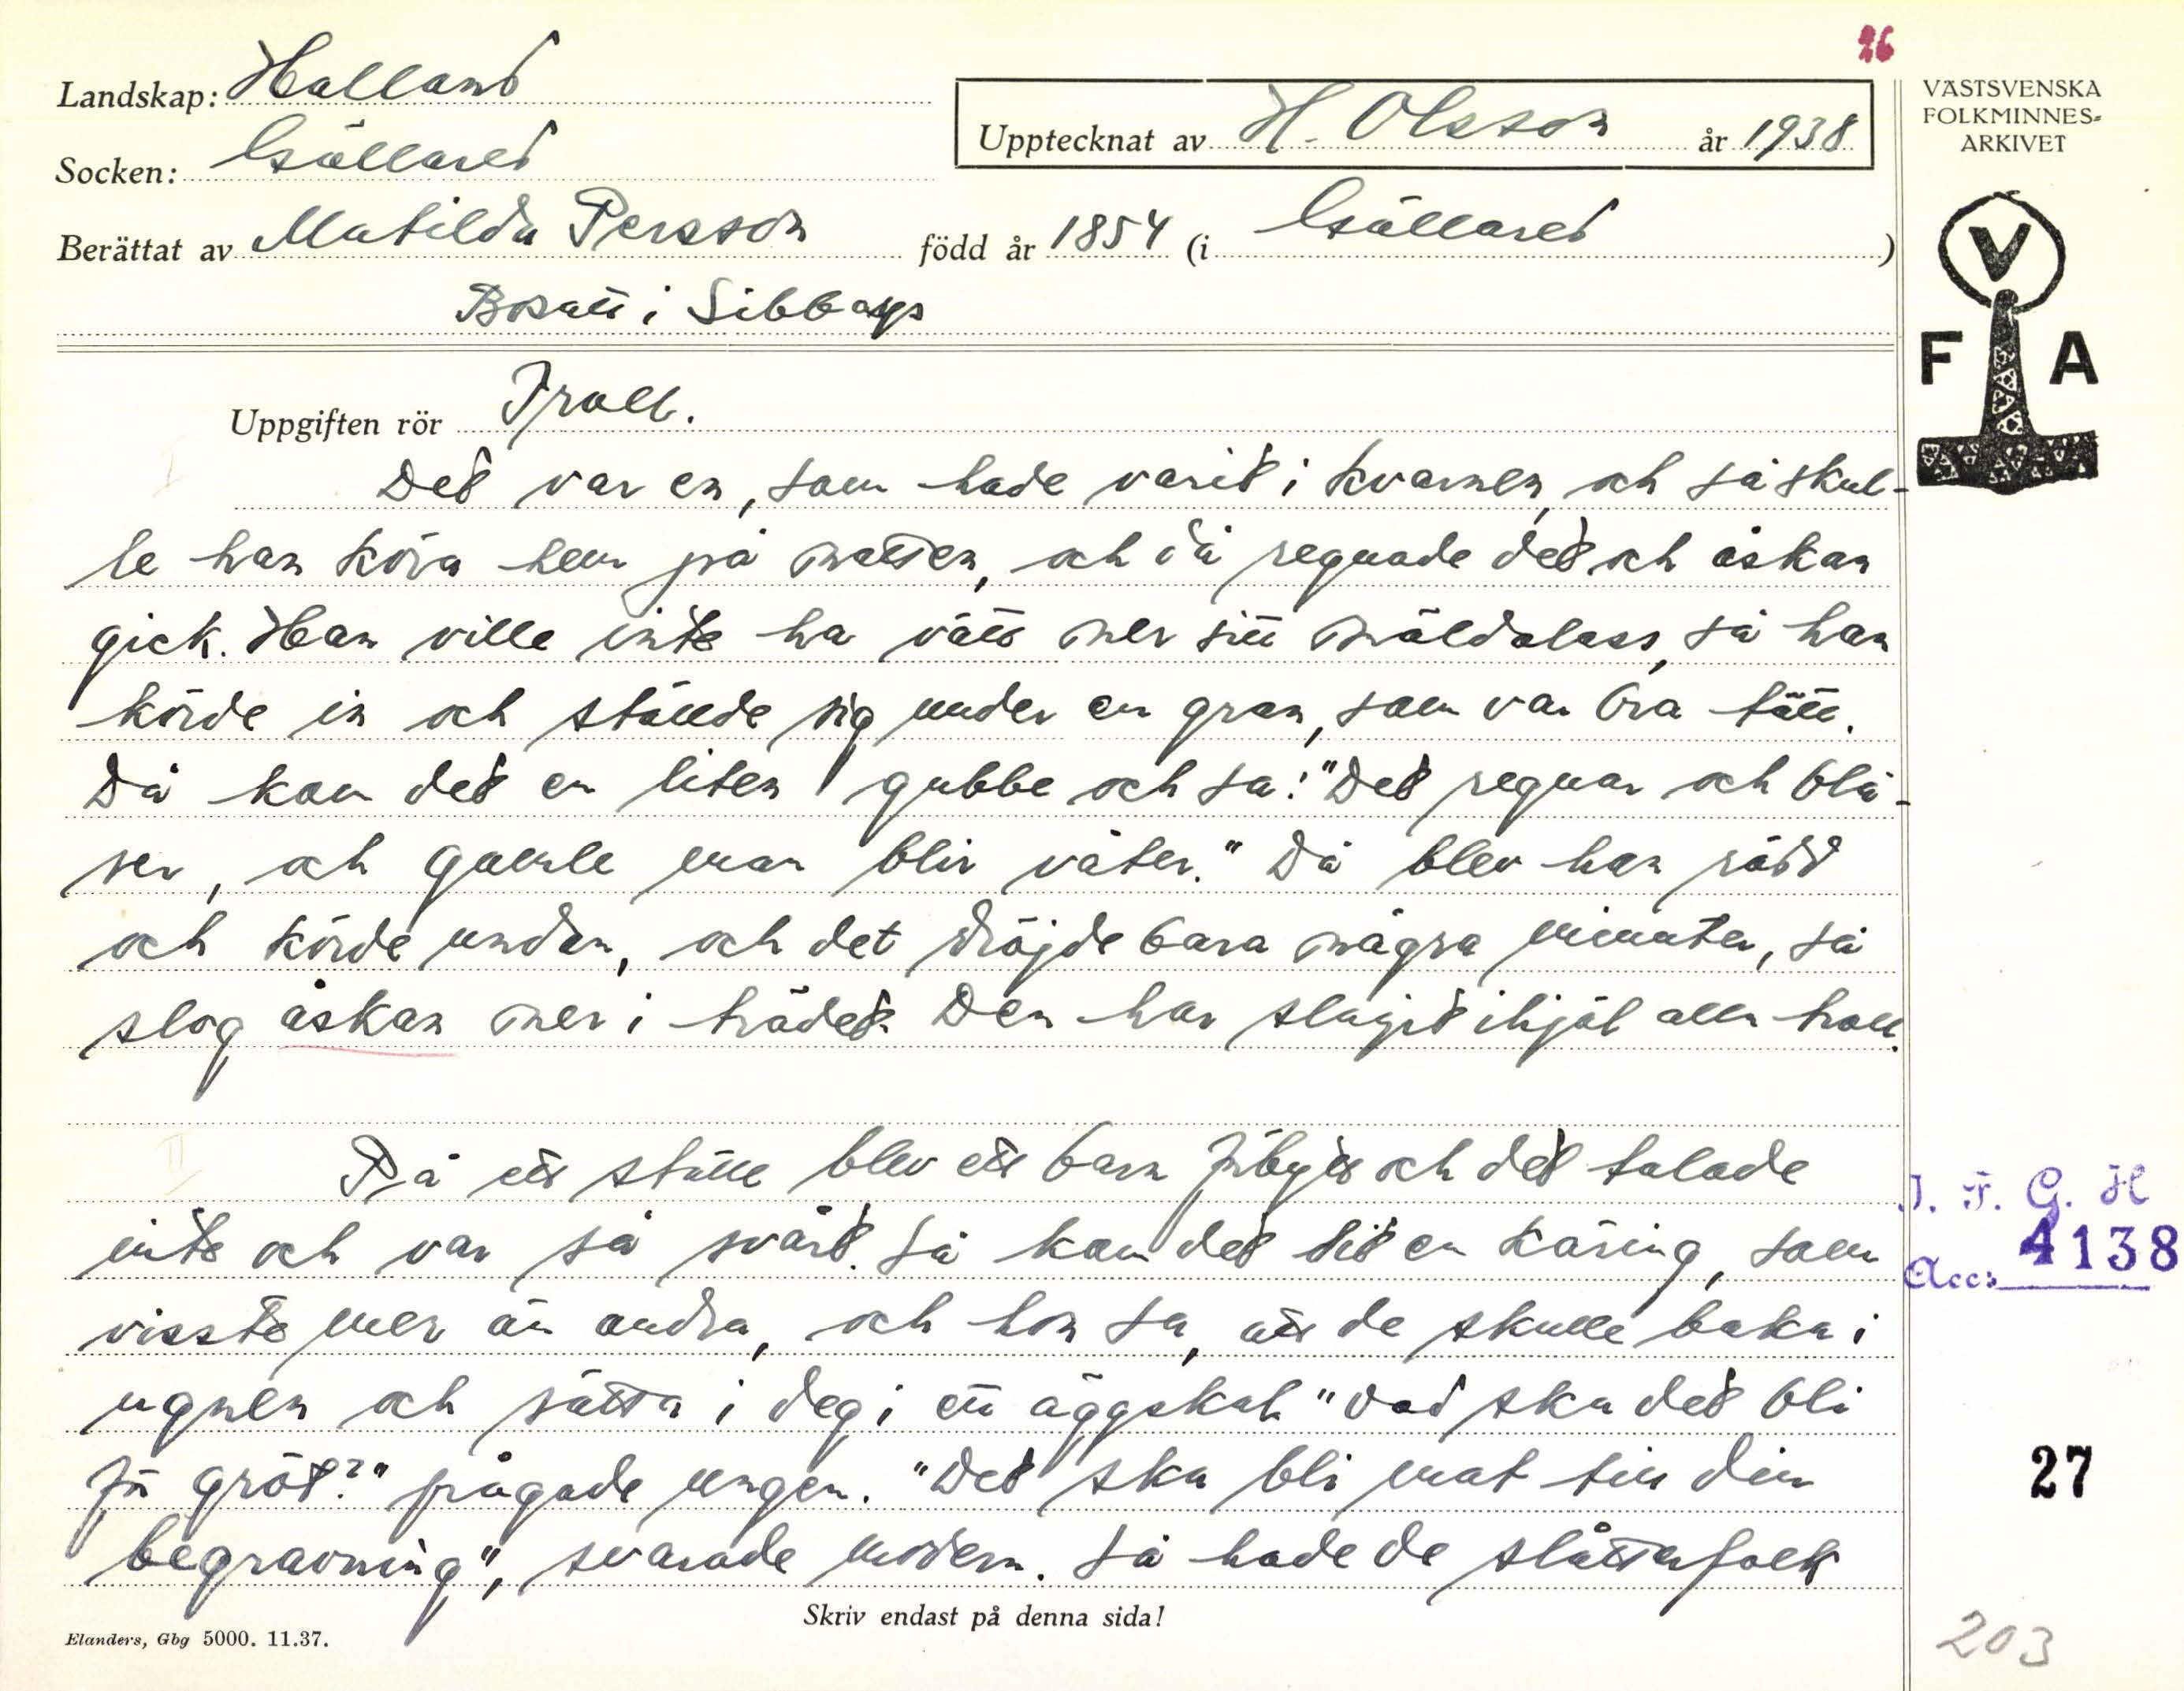 26
Landskap: Halland
Socken: Gällared
Upptecknat av H. Olsson år 1938
Berättat av Matilda Persson född år 1854 (i Gällared)
Bosatt i Sibbarp
VÄSTSVENSKA
FOLKMINNES-
ARKIVET
V
F A
Uppgiften rör Troll.
I
Det var en, som hade varit i kvarnen, och så skul-
le han köra hem på natten, och då regnade det och åskan
gick. Han ville inte ha vått ner sitt mäldalass, så han
körde in och ställde sig under en gran, som var bra tätt.
Då kom det en liten gubbe och sa: "Det regnar och blå-
ser, och gamle man blir våter." Då blev han rädd
och körde undan, och det dröjde bara några minuter, så
slog åskan ner i trädet. Den har slagit ihjäl alla troll.
II
På ett ställe blev ett barn förbytt och det talade
inte och var så svårt. Så kom det dit en käring, som
visste mer än andra, och hon sa, att de skulle baka i
ugnen och sätta i deg i ett äggskal. "Vad ska det bli
för gröt?" frågade ungen. "Det ska bli mat till din
begravning", svarade modern. Så hade de slåttafolk
I. F. G. H
Acc: 4138
27
203
Skriv endast på denna sida!
Elanders, Gbg 5000. 11.37.